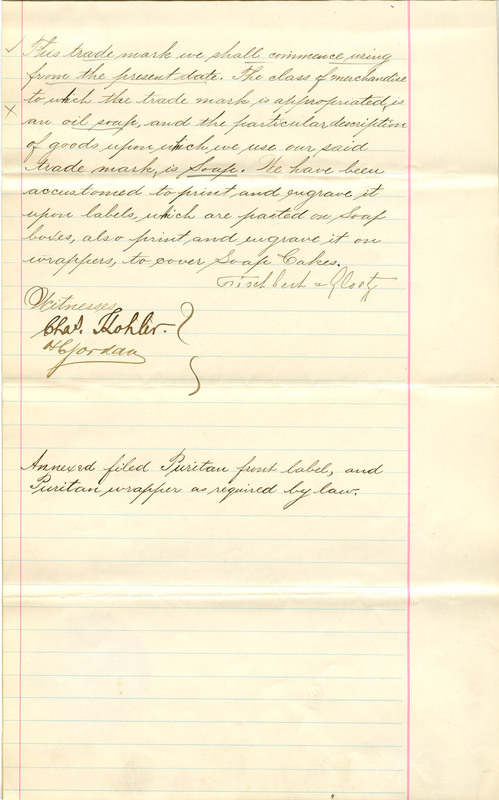 This trade mark we shall commence using
from the present date. The class of merchandise
to which the trade mark is appropriated, is
an oil soap, and the particular description
of goods upon which, we use our said
trade mark, is Soap. We have been
accustomed to print and engrave it
upon labels, which are pasted on Soap
boxes, also print and engrave it on
wrappers, to cover Soap Cakes.
Witnesses
Chas. Kohler.
H C Jordan
Annexed filed Puritan front label, and
Puritan wrapper as required by law.